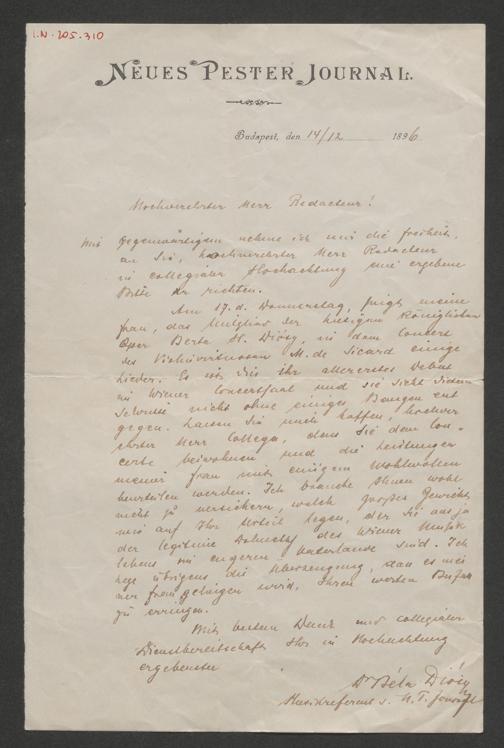 I.N. 205.310
NEUES PESTER JOURNAL.
Budapest, den 14/12 1896
Hochverehrter Herr Redacteur!
Mit Gegenwärtigem nehme ich mir die Freiheit,
an Sie, hochverehrter Herr Redacteur
in collegialer Hochachtung eine ergebene
Bitte zu richten.
Am 17. d. Donnerstag, singt meine
Frau, das Mitglied der hiesigen Königlichen
Oper Berta H. Diósy, in dem Concert
des Violinvirtuosen M. de Sicard einige
Lieder. Es ist dies ihr allererstes Debut
im Wiener Concertsaal und sie sieht diesem
Schritte nicht ohne einiges Bangen ent
gegen. Lassen Sie mich hoffen, hochver
ehrter Herr College, dass Sie dem Con-
certe beiwohnen und die Leistungen
meiner Frau mit einigem Wohlwollen
beurteilen werden. Ich brauche Ihnen wohl
nicht zu versichern, welch großes Gewicht
wir auf Ihr Urteil legen, der Sie aus ja
der legitime Dolmetsch des Wiener Musik
lebens im engeren Vaterlande sind. Ich
hege übrigens die Überzeugung, dass es mei
ner Frau gelingen wird, Ihren werten Beifall
zu erringen.
Mit bestem Dank und collegialer
Dienstbereitschaft Ihr in Hochachtung
ergebenster
Dr Béla Diósy
Musikreferent d. N. P. Journal